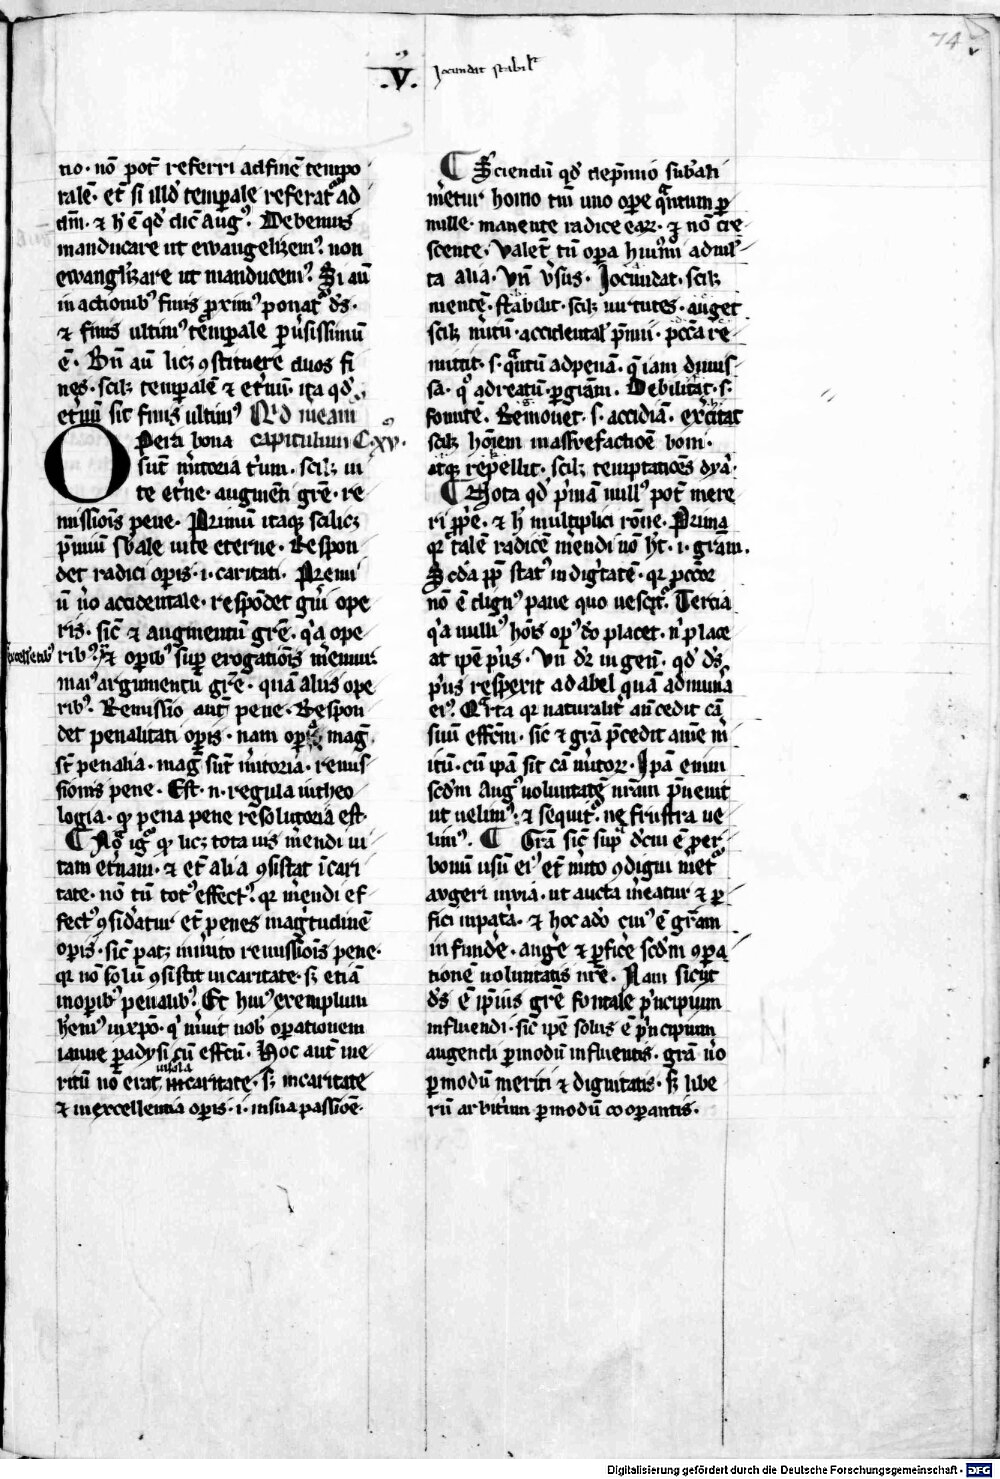 74
.V. Jocundat stabilͭ
tio · nō potͭ referri ad finē tempo
ralē · etͭ si illđ temꝑale referatᷣ ad
dm̄ · ⁊ h̓ ē qđ dic̄ Augꝰ · Debemus
manducare ut ewangelizemꝰ · non
ewanglizare ut manducemꝰ · Si aū
in actionibꝰ finis ꝓximꝰ ponatᷣ d̄s ·
⁊ finis ultimꝰ tēꝑale ꝑuͥsissimū
ē · Bn̄ aū licꝫ ꝯstituere duos fi
nes · scilꝫ temꝑalē ⁊ et̓nū · ita qđ
et̓nū sit finis ultimꝰ
capitulum C · xv ·
Opera bona
sūt m̓itoria t̓um · scilꝫ ui
te et̓ne · augmēti gr̄e · re
missiōis pene · Primū itaqꝫ scilicꝫ
p̄miū sb̓ale uite eterne · Respon
det radici oꝑis · i · caritati · Premi
ū ūo accidentale · respōdet gn̓i ope
ris · sic̄ ⁊ augmentū gr̄e · q̓a ope
excellētibꝰ
ribꝰ ⁊ oꝑibꝰ suꝑ erogatiōis m̓emur
maiꝰ argumentū gr̄e · quā aliis ope
ribꝰ · Remissio aut̄ pene · Respon
det penalitati oꝑis · nam oꝑa mag̓
st̄ penalia · mag̓ sūt m̓itoria · remis
sionis pene · Est · n · regula in theo
logia · qꝫ pena pene resolutoria est ·
Noͣ igͥ qꝫ licꝫ tota uis m̓endi ui
tam et̓nam · ⁊ et̄ alia ꝯsistat ī cari
tate · nō tn̄ totꝰ effectꝰ · qr m̓endi ef
fectꝰ ꝯsid̓atur et̄ penes mag̓tudinē
oꝑis · sic̄ patꝫ in m̓ito remissiōis pene ·
qr nō solū ꝯsistit in caritate · sꝫ etiā
in oꝑibꝰ penalibꝰ · Et huiꝰ exemplum
h̓emꝰ in xp̄o · qͥ m̓uit nob̓ oꝑationem
ianue ꝑadysi cū effcū · Hoc aut̄ me
in sola
ritū nō erat in caritate · sꝫ in caritate
⁊ in excellentia oꝑis · i · in sua passiōe ·
Sciendū qđ de p̄mio sub̓ali
m̓etur homo tm̄ uno oꝑe qͣntum ꝑ
mille · manente radice eaꝝ · ⁊ nō cre
scente · Valet tn̄ oꝑa huiꝰmōi ad mul
ta alia · Vn̄ v̓sus · Jocundat · scilꝫ
mentē · stabilit · scilꝫ uirtutes · auget
scilꝫ m̓itū · accidental̓ p̄mii · pc̄cā re
mittit · s · qͣntū ad penā · qͣ iam dimis
sa · qͦ ad reatū · ꝑ grām · Debilitat · s ·
fomite · Remouet · s · accidiā · excitat
scilꝫ hōiem in assuefactiōe boni ·
atqꝫ repellit · scilꝫ temptatiōes dya ·
Nota qđ p̓mā nullꝰ potͭ mere
ri ꝓp̄e · ⁊ h̓ multiplici rōne · Prima
qr talē radicē m̓endi nō hͭ · i · grām ·
Scd̓a ꝓp̄ statꝰ indig̓tatē · qr pc̄cōr
nō ē dignꝰ pane quo uescitᷣ · Tercia
q̓a nulliꝰ hōis opꝰ do placet · nͥ place
at ipē pͥus · Vn̄ dr̄ in gen̄ · qđ d̄s
pͥus resperit ad abel quā ad mun̓a
eiꝰ · Qͣrta qr naturalit̓ ān̄cedit cā
suū effc̄m · sic̄ ⁊ grā p̄cedit ām̄e m̓
itū · cū ipā sit cā m̓itoꝝ · Ipā enim
scd̓m Augꝰ uoluntatē nrām p̄uenit
ut uelimꝰ · ⁊ sequitᷣ · ne frustra ue
limꝰ · Grā sic̄ supͣ dc̄m ē per
bonū usū eiꝰ et̄ m̓ito ꝯdigni m̓etᷣ
augeri in uia · ut aucta m̓eatur ⁊ ꝑ
fici in pat̓a · ⁊ hoc a do cuiꝰ ē grām
infund̓e · auge ⁊ ꝑfic̓e scd̓m ꝯꝑa
tionē uoluntatis nr̄e · Nam sicut
d̄s ē ip̄ius gr̄e fontale pͥncipium
influendi · sic̄ ipē solus ē pͥncipium
augendi ꝑ modū influentis · grā ūo
ꝑ modū meriti ⁊ dignitatis · sꝫ libe
rū arbitͥum ꝑ modū cooꝑantis ·
Digitalisierung gefördert durch die Deutsche Forschungsgemeinschaft - DFG